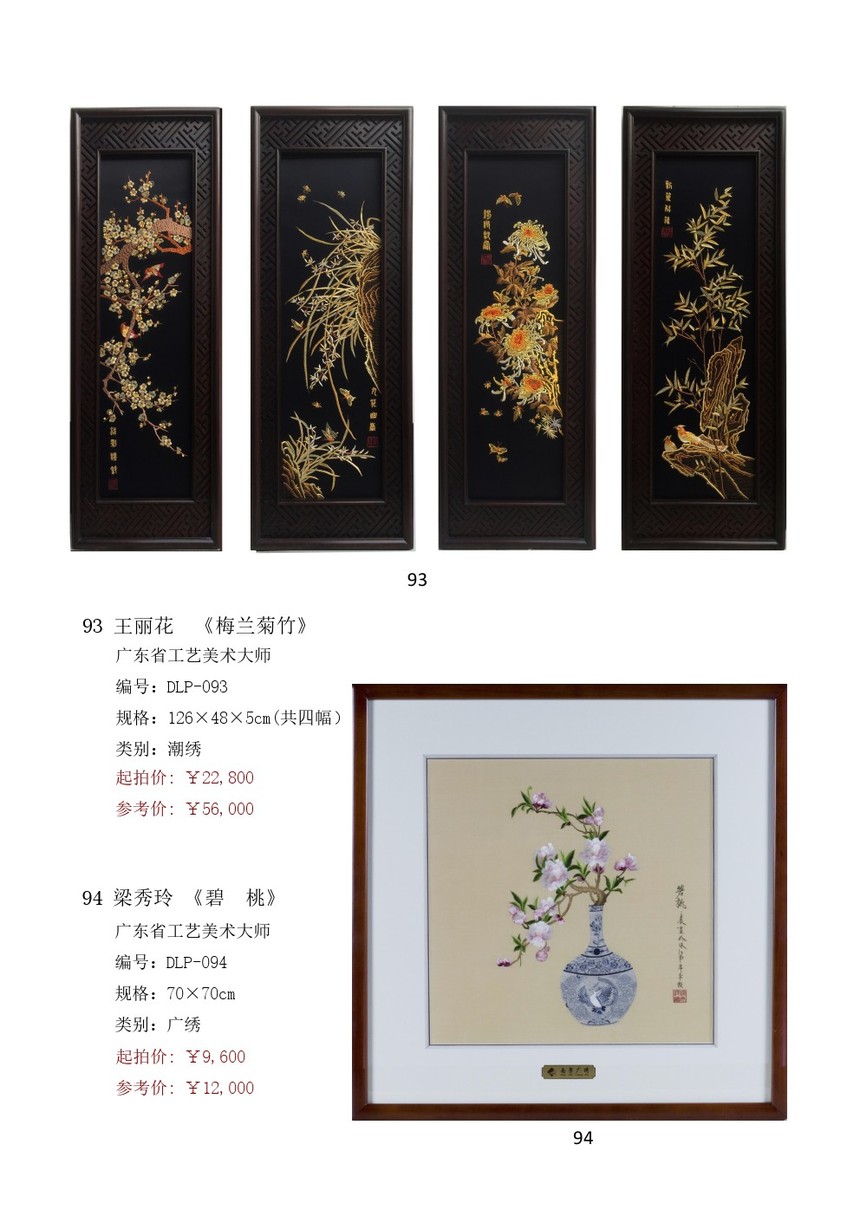 93
93 王丽花 《梅兰菊竹》
广东省工艺美术大师
编号：DLP-093
规格：126×48×5cm(共四幅）
类别：潮绣
起拍价: ￥22,800
参考价: ￥56,000
94 梁秀玲 《碧 桃》
广东省工艺美术大师
编号：DLP-094
规格：70×70cm
类别：广绣
起拍价: ￥9,600
参考价: ￥12,000
94